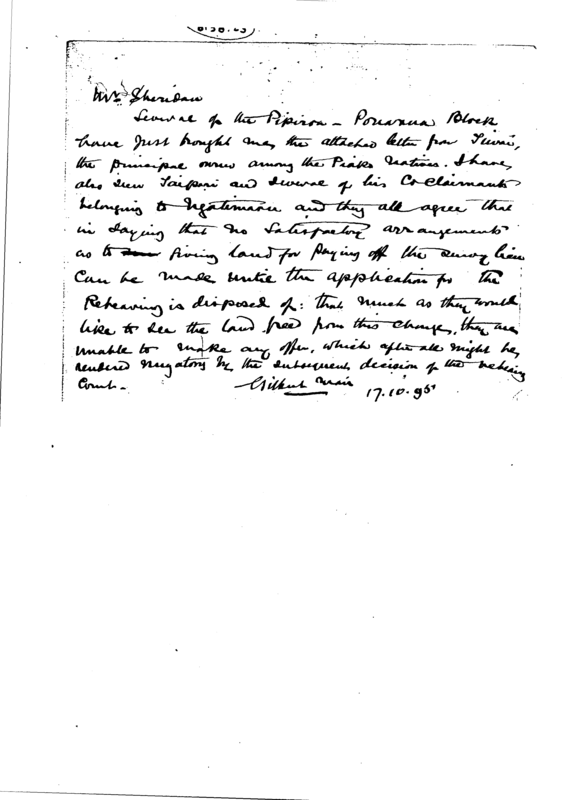 Mr Sheridan
Several of the Pipiroa - Pouarua Block
have just brought me, the attached letter from
the principal owner among the Piako Natives. I have,
also seen Taipari and several of his Co-claimants
belonging to Ngatimaru and they all agree that
in saying that no satisfactory arrangements
as to giving land for paying off the survey lien
Can be made until the application for the
Rehearing is disposed of: that much as they would
like to see the land freed from this charge, they are
unable to make any offer, which after all might be,
rendered nugatory by the subsequent decision of the rehearing
Court.
Gilbert Mair
17.10.95